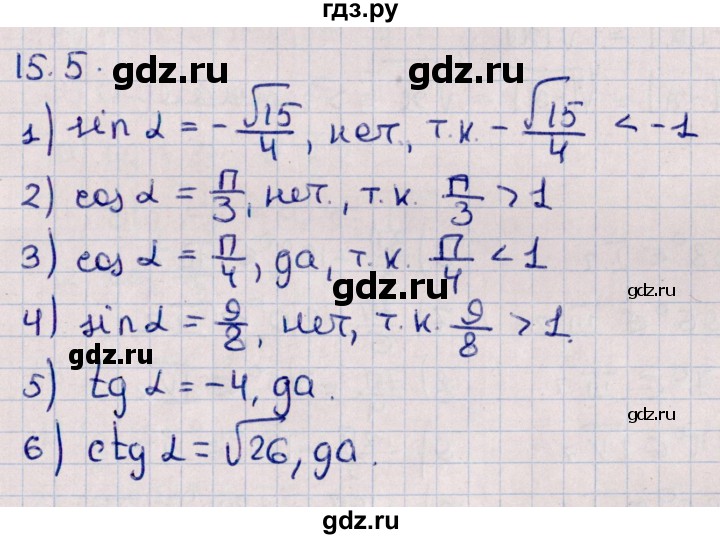 гдз.ру
15.5.
gdz.ru
1) sin α = -√15/4, нет, т.к. -√15/4 < -1
2) cos α = π/3, нет., т.к. π/3 > 1
3) cos α = π/4, да, т.к. π/4 < 1
gdz.ru
gdz.ru
4) sin α = 9/8, нет, т.к. 9/8 > 1.
gdz.ru
5) tg α = -4, да.
gdz.ru
6) ctg α = √26, да.
gdz.ru